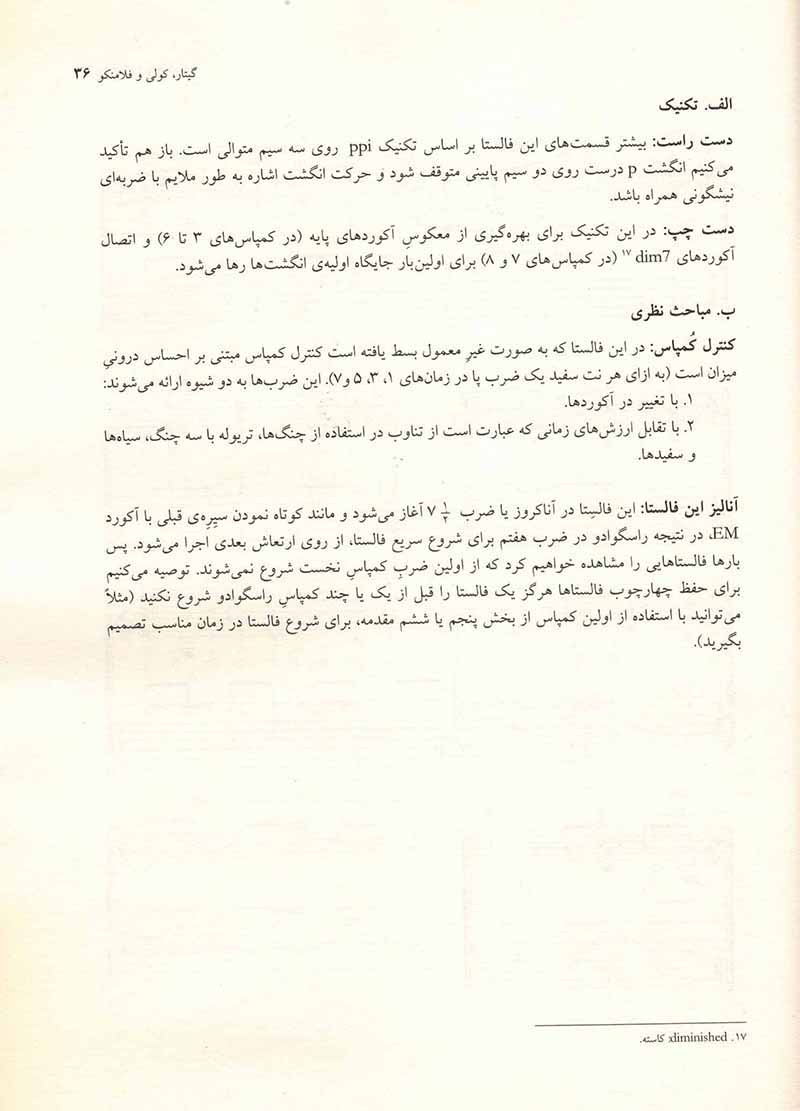 گیتار، کولی و فلامنکو ۳۶
الف. تکنیک
دست راست: بیشتر قسمت‌های این فالستا بر اساس تکنیک ppi روی سه سیم متوالی است. باز هم تأکید
می‌کنیم انگشت p درست روی دو سیم پایینی متوقف شود و حرکت انگشت اشاره به طور ملایم با ضربه‌ای
نیشگونی همراه باشد.
دست چپ: در این تکنیک برای بهره‌گیری از معکوسِ آکوردهای پایه (در کمپاس‌های ۳ تا ۶) و اتصال
آکوردهای dim7 ۱۷ (در کمپاس‌های ۷ و ۸) برای اولین‌بار جایگاه اولیه‌ی انگشت‌ها رها می‌شود.
ب. مباحث نظری
کنترل کُمپاس: در این فالستا که به صورت غیرِ معمول بسط یافته است کنترل کمپاس مبتنی بر احساس درونیِ
میزان است (به ازای هر نت سفید یک ضرب پا در زمان‌های ۱، ۳، ۵ و۷). این ضرب‌ها به دو شیوه ارائه می‌شوند:
۱. با تغییر در آکوردها.
۲. با تقابل ارزش‌های زمانی که عبارت است از تناوب در استفاده از چنگ‌ها، تریوله با سه چنگ، سیاه‌ها
و سفیدها.
آنالیز این فالستا: این فالسِتا در آناکروز یا ضرب ۷ ۱/۲ آغاز می‌شود و مانند کوتاه نمودن سیِره‌ی قبلی با آکورد
EM، در نتیجه راسگوادو در ضرب هفتم برای شروع سریع فالستا، از روی ارتعاش بعدی اجرا می‌شود. پس
بارها فالستاهایی را مشاهده خواهیم کرد که از اولین ضربِ کمپاسِ نخست شروع نمی‌شوند. توصیه می‌کنیم
برای حفظ چهارچوب فالستاها هرگز یک فالستا را قبل از یک یا چند کمپاسِ راسگوادو شروع نکنید (مثلاً
می‌توانید با استفاده از اولین کمپاس از بخش پنجم یا ششم مقدمه، برای شروع فالستا در زمان مناسب تصمیم
بگیرید).
۱۷. diminished: کاسته.